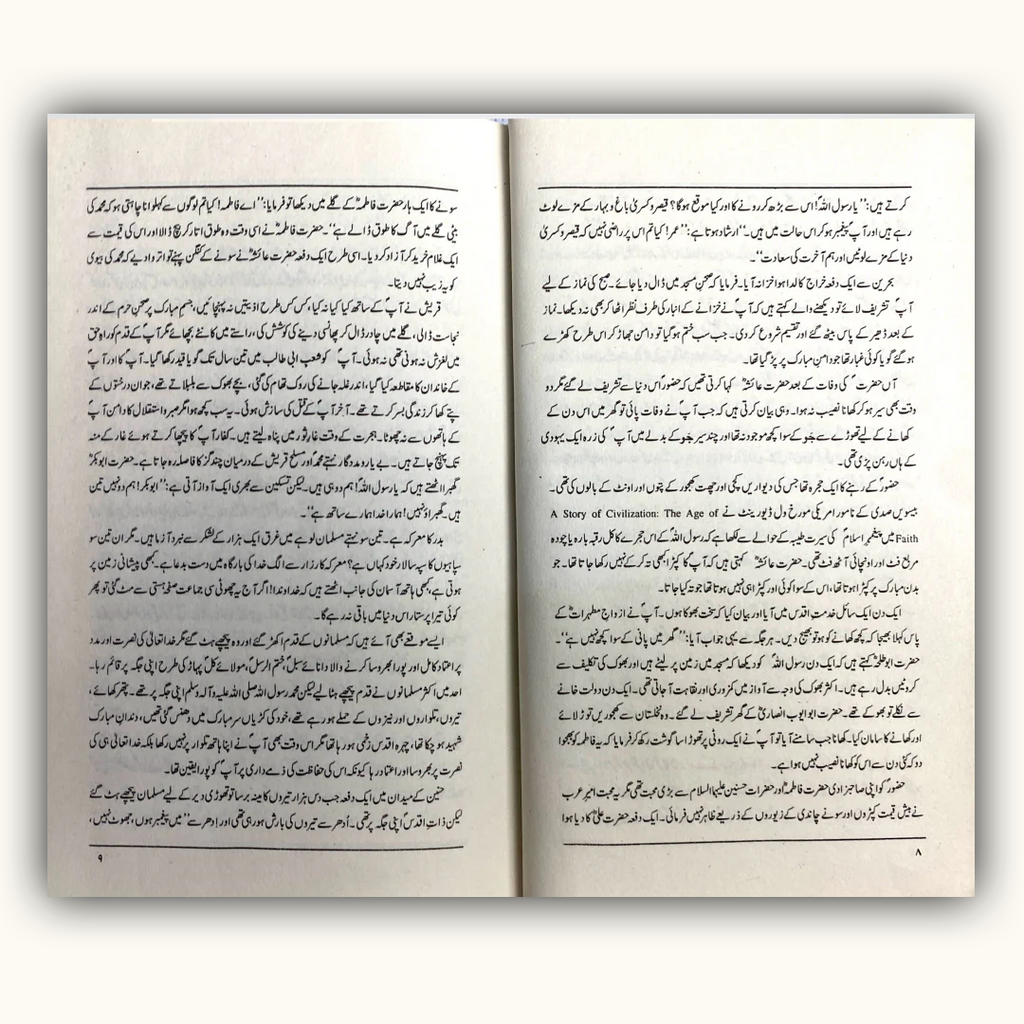 کرتے ہیں: ’’یا رسول اللہؐ! اس سے بڑھ کر رونے کا اور کیا موقع ہوگا؟ قیصر و کسریٰ باغ و بہار کے مزے لوٹ
رہے ہیں اور آپؐ پیغمبر ہو کر اس حالت میں ہیں۔‘‘ ارشاد ہوتا ہے: ’’عمر! کیا تم اس پر راضی نہیں کہ قیصر و کسریٰ
دنیا کے مزے لوٹیں اور ہم آخرت کی سعادت‘‘۔
بحرین سے ایک دفعہ خراج کا لدا ہوا خزانہ آیا۔ فرمایا کہ صحنِ مسجد میں ڈال دیا جائے۔ صبح کی نماز کے لیے
آپؐ تشریف لائے تو دیکھنے والے کہتے ہیں کہ آپؐ نے خزانے کے انبار کی طرف نظر اٹھا کر بھی نہ دیکھا۔ نماز
کے بعد ڈھیر کے پاس بیٹھ گئے اور تقسیم شروع کر دی۔ جب سب ختم ہو گیا تو دامن جھاڑ کر اس طرح کھڑے
ہو گئے گویا کوئی غبار تھا جو دامنِ مبارک پر پڑ گیا تھا۔
آں حضرتؐ کی وفات کے بعد حضرت عائشہؓ کہا کرتی تھیں کہ حضورؐ اس دنیا سے تشریف لے گئے مگر دو
وقت بھی سیر ہو کر کھانا نصیب نہ ہوا۔ وہی بیان کرتی ہیں کہ جب آپؐ نے وفات پائی تو گھر میں اس دن کے
کھانے کے لیے تھوڑے سے جَو کے سوا کچھ موجود نہ تھا اور چند سیر جَو کے بدلے میں آپؐ کی زرہ ایک یہودی
کے ہاں رہن پڑی تھی۔
حضورؐ کے رہنے کا ایک حجرہ تھا جس کی دیواریں کچی اور چھت کھجور کے پتوں اور اونٹ کے بالوں کی تھی۔
بیسویں صدی کے نامور امریکی مورخ ول ڈیورینٹ نے A Story of Civilization: The Age of
Faith میں پیغمبرِ اسلامؐ کی سیرت طیبہ کے حوالے سے لکھا ہے کہ رسول اللہؐ کے اس حجرے کا کل رقبہ بارہ یا چودہ
مربع فٹ اور اونچائی آٹھ فٹ تھی۔ حضرت عائشہؓ کہتی ہیں کہ آپؐ کا کپڑا کبھی تہ کر کے نہیں رکھا جاتا تھا۔ جو
بدن مبارک پر کپڑا ہوتا تھا، اس کے سوا کوئی اور کپڑا ہی نہیں ہوتا تھا جو تہ کیا جاتا۔
ایک دن ایک سائل خدمتِ اقدس میں آیا اور بیان کیا کہ سخت بھوکا ہوں۔ آپؐ نے ازواجِ مطہراتؓ کے
پاس کہلا بھیجا کہ کچھ کھانے کو ہو تو بھیج دیں۔ ہر جگہ سے یہی جواب آیا: ’’گھر میں پانی کے سوا کچھ نہیں ہے‘‘۔
حضرت ابو طلحہؓ کہتے ہیں کہ ایک دن رسول اللہؐ کو دیکھا کہ مسجد میں زمین پر لیٹے ہیں اور بھوک کی تکلیف سے
کروٹیں بدل رہے ہیں۔ اکثر بھوک کی وجہ سے آواز میں کمزوری اور نقاہت آ جاتی تھی۔ ایک دن دولت خانے
سے نکلے تو بھوکے تھے۔ حضرت ابو ایوب انصاریؓ کے گھر تشریف لے گئے۔ وہ نخلستان سے کھجوریں توڑ لائے
اور کھانے کا سامان کیا۔ کھانا جب سامنے آیا تو آپؐ نے ایک روٹی پر تھوڑا سا گوشت رکھ کر فرمایا کہ یہ فاطمہ کو بھجوا
دو کہ کئی دن سے اس کو کھانا نصیب نہیں ہوا ہے۔
حضورؐ کو اپنی صاحبزادی حضرت فاطمہؓ اور حضرات حسنین علیہما السلام سے بڑی محبت تھی مگر یہ محبت امیرِ عرب
نے بیش قیمت کپڑوں اور سونے چاندی کے زیوروں کے ذریعے ظاہر نہیں فرمائی۔ ایک دفعہ حضرت علیؓ کا دیا ہوا
۸
سونے کا ایک ہار حضرت فاطمہؓ کے گلے میں دیکھا تو فرمایا: ’’اے فاطمہ! کیا تم لوگوں سے کہلوانا چاہتی ہو کہ محمدؐ کی
بیٹی گلے میں آگ کا طوق ڈالے ہے‘‘۔ حضرت فاطمہؓ نے اسی وقت وہ طوق اتار کر بیچ ڈالا اور اس کی قیمت سے
ایک غلام خرید کر آزاد کر دیا۔ اسی طرح ایک دفعہ حضرت عائشہؓ نے سونے کے کنگن پہنے تو اتروا دیے کہ محمدؐ کی بیوی
کو یہ زیب نہیں دیتا۔
قریش نے آپؐ کے ساتھ کیا کیا نہ کیا، کس کس طرح اذیتیں نہ پہنچائیں، جسمِ مبارک پر صحنِ حرم کے اندر
نجاست ڈالی، گلے میں چادر ڈال کر پھانسی دینے کی کوشش کی، راستے میں کانٹے بچھائے مگر آپؐ کے قدم کو راہِ حق
میں لغزش نہ ہوئی تھی نہ ہوئی۔ آپؐ کو شعب ابی طالب میں تین سال تک گویا قید رکھا گیا۔ آپؐ کا اور آپؐ
کے خاندان کا مقاطعہ کیا گیا، اندر غلہ جانے کی روک تھام کی گئی، بچے بھوک سے بلبلاتے تھے، جوان درختوں کے
پتے کھا کر زندگی بسر کرتے تھے۔ آخر آپؐ کے قتل کی سازش ہوئی۔ یہ سب کچھ ہوا مگر صبر و استقلال کا دامن آپؐ
کے ہاتھوں سے نہ چھوٹا۔ ہجرت کے وقت غارِ ثور میں پناہ لیتے ہیں۔ کفار آپؐ کا پیچھا کرتے ہوئے غار کے منہ
تک پہنچ جاتے ہیں۔ بے یار و مددگار نہتے محمدؐ اور مسلح قریش کے درمیان چند گز کا فاصلہ رہ جاتا ہے۔ حضرت ابوبکرؓ
گھبرا اٹھتے ہیں کہ یا رسول اللہؐ! ہم دو ہی ہیں۔ لیکن تسکین سے بھری ایک آواز آتی ہے: ’’ابوبکر! ہم دو نہیں تین
ہیں۔ گھبراؤ نہیں! ہمارا خدا ہمارے ساتھ ہے‘‘۔
بدر کا معرکہ ہے۔ تین سو نہتے مسلمان لوہے میں غرق ایک ہزار کے لشکر سے نبرد آزما ہیں۔ مگر ان تین سو
سپاہیوں کا سپہ سالار خود کہاں ہے؟ معرکہ کارزار سے الگ خدا کی بارگاہ میں دست بدعا ہے۔ کبھی پیشانی زمین پر
ہوتی ہے، کبھی ہاتھ آسمان کی جانب اٹھتے ہیں کہ خداوندا! اگر آج یہ چھوٹی سی جماعت صفحۂ ہستی سے مٹ گئی تو پھر
کوئی تیرا پرستار اس دنیا میں باقی نہ رہے گا۔
ایسے موقعے بھی آئے ہیں کہ مسلمانوں کے قدم اکھڑ گئے اور وہ پیچھے ہٹ گئے مگر خدا تعالیٰ کی نصرت اور مدد
پر اعتمادِ کامل اور پورا بھروسا کرنے والا دانائے سبل، ختم الرسل، مولائے کلؐ پہاڑ کی طرح اپنی جگہ پر قائم رہا۔
احد میں اکثر مسلمانوں نے قدم پیچھے ہٹا لیے لیکن محمد رسول اللہ صلی اللہ علیہ و آلہ وسلم اپنی جگہ پر تھے۔ پتھر کھائے،
تیروں، تلواروں اور نیزوں کے حملے ہو رہے تھے، خود کی کڑیاں سرِ مبارک میں دھنس گئی تھیں، دندانِ مبارک
شہید ہو چکا تھا، چہرہ اقدس زخمی ہو رہا تھا مگر اس وقت بھی آپؐ نے اپنا ہاتھ تلوار پر نہیں رکھا بلکہ خدا تعالیٰ ہی کی
نصرت پر بھروسا اور اعتماد رہا کیونکہ اس کی حفاظت کی ذمے داری پر آپؐ کو پورا یقین تھا۔
حنین کے میدان میں ایک دفعہ جب دس ہزار تیروں کا مینہ برسا تو تھوڑی دیر کے لیے مسلمان پیچھے ہٹ گئے
لیکن ذاتِ اقدسؐ اپنی جگہ پر تھی۔ اُدھر سے تیروں کی بارش ہو رہی تھی اور اِدھر سے ’’میں پیغمبر ہوں، جھوٹ نہیں،
۹